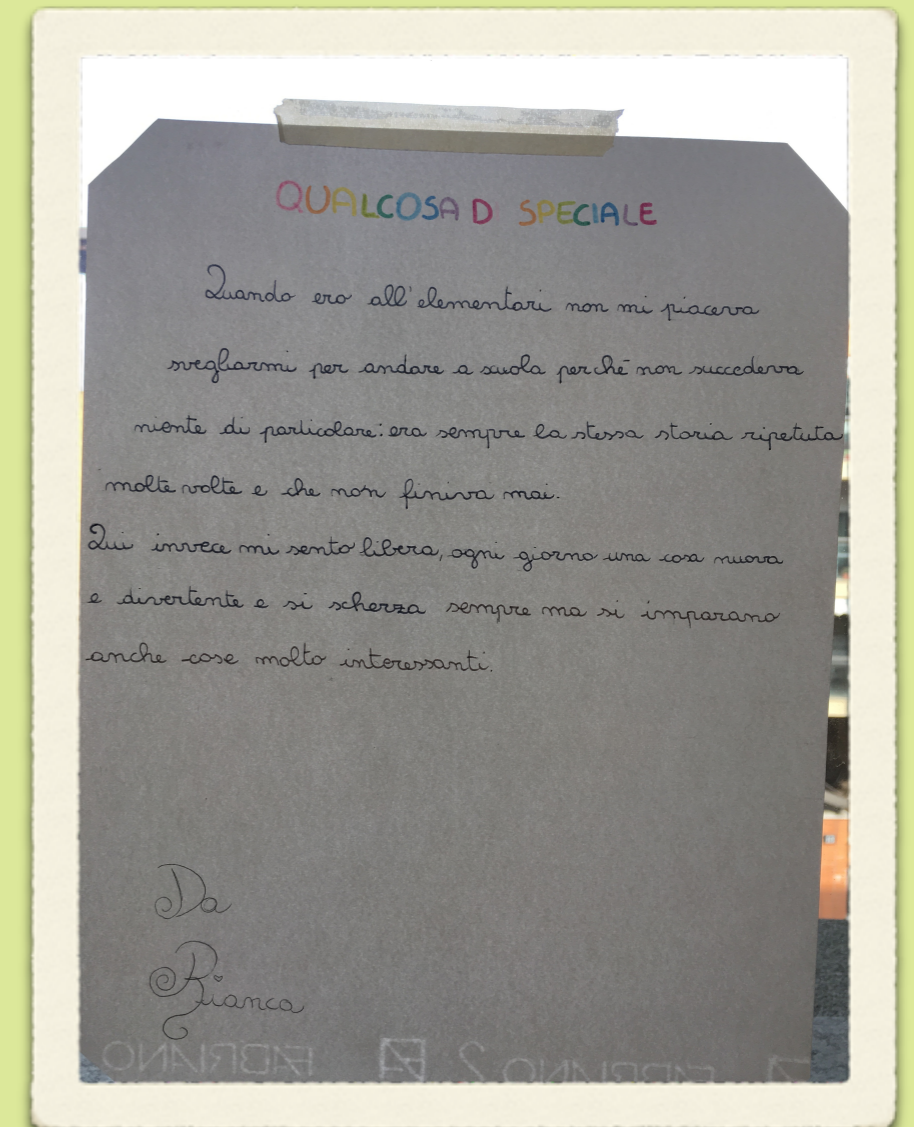 QUALCOSA D SPECIALE
Quando ero all'elementari non mi piaceva
svegliarmi per andare a scuola perché non succedeva
niente di particolare: era sempre la stessa storia ripetuta
molte volte e che non finiva mai.
Qui invece mi sento libera, ogni giorno una cosa nuova
e divertente e si scherza sempre ma si imparano
anche cose molto interessanti.
Da
Bianca
FABRIANO FABRIANO 2